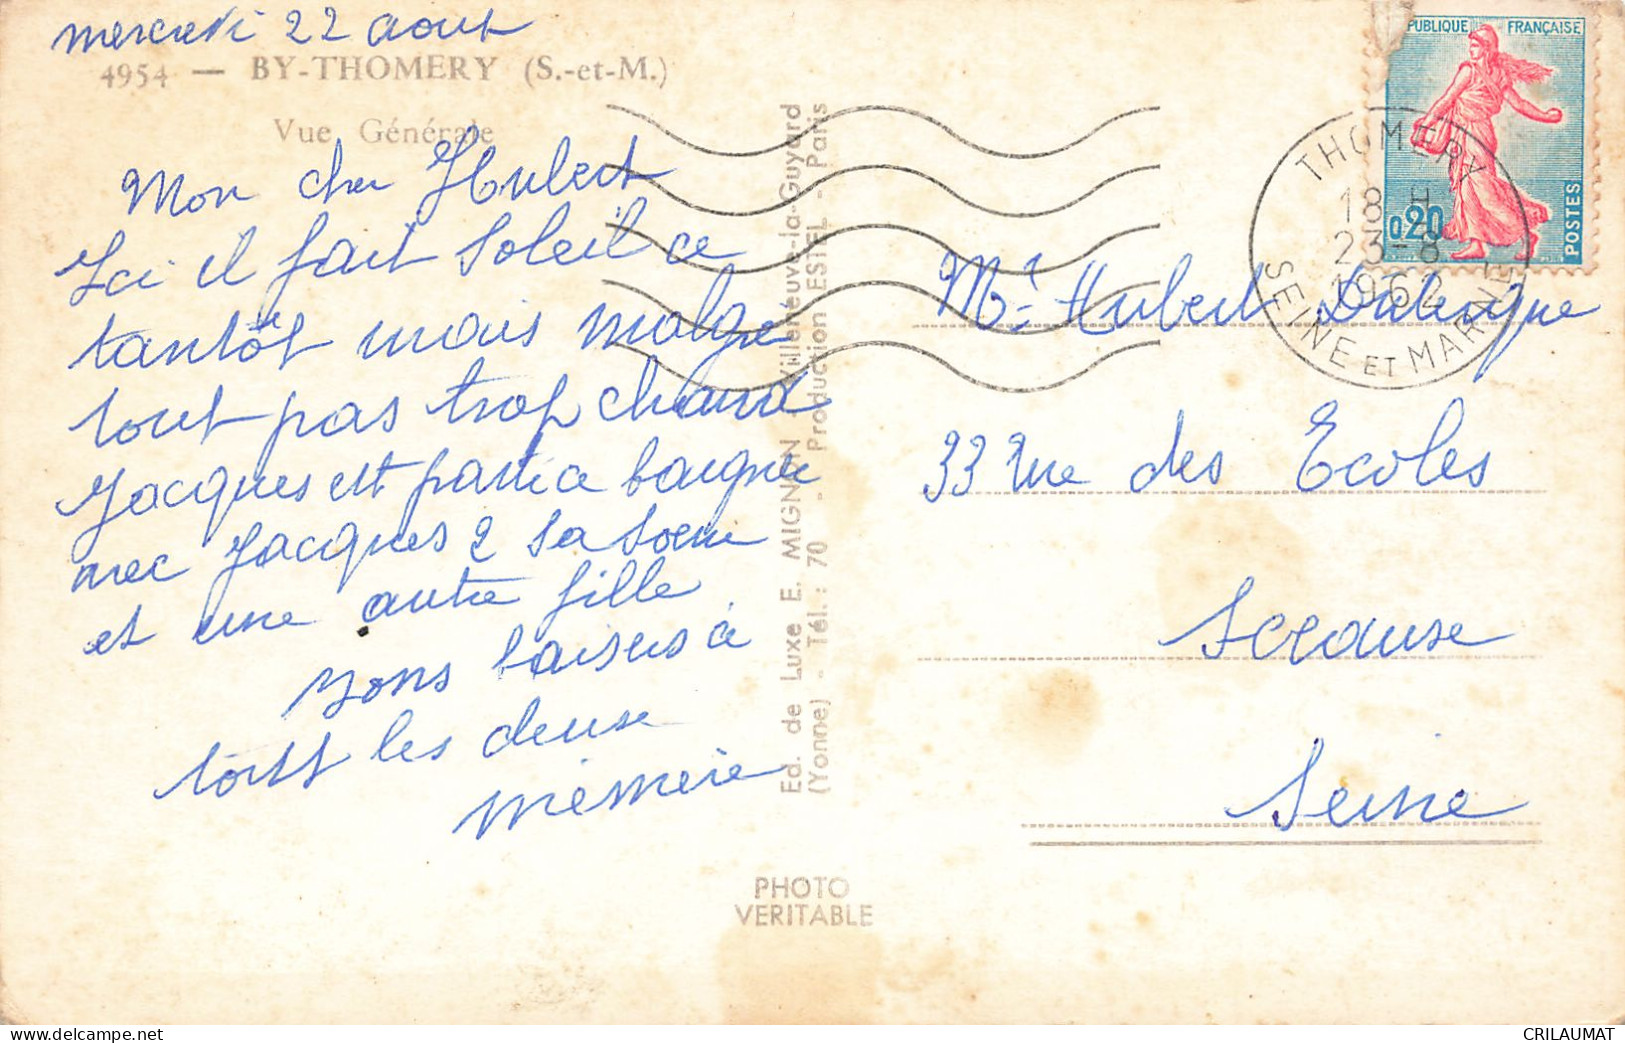 mercredi 22 aout
4954 — BY-THOMERY (S.-et-M.)
Vue Générale
Mon cher Hubert
Ici il fait soleil ce
tantôt mais malgré
tout pas trop chaud
Jacques est partie baigner
avec Jacques 2 sa soeur
et une autre fille
bons baisers à
tous les deux
mémère
Ed. de Luxe E. MIGNON Villeneuve-la-Guyard
(Yonne) - Tél. : 70 - Production ESTEL - Paris
PHOTO
VERITABLE
RÉPUBLIQUE FRANÇAISE
0,20
POSTES
THOMERY
18 H
23-8
1962
SEINE ET MARNE
Mr Hubert
33 rue des Ecoles
Sceaux
Seine
CRILAUMAT